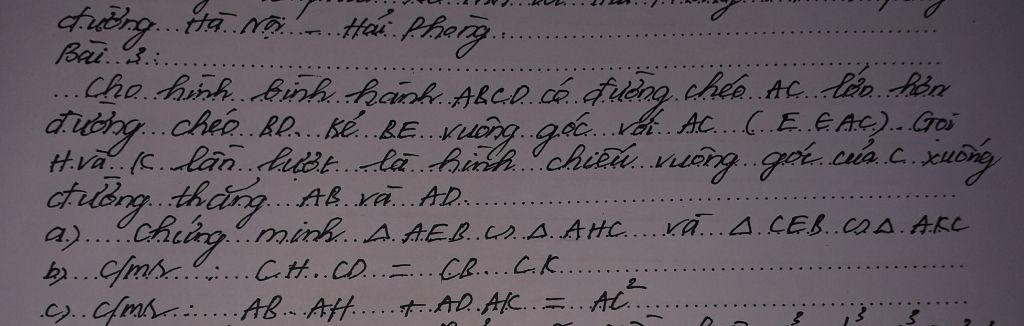 đường Hà Nội - Hải Phòng.
Bài 3:
Cho hình bình hành ABCD có đường chéo AC lớn hơn
đường chéo BD. Kẻ BE vuông góc với AC ( E ∈ AC). Gọi
H và K lần lượt là hình chiếu vuông góc của C xuống
đường thẳng AB và AD.
a.) Chứng minh △ AEB ∽ △ AHC và △ CEB ∽ △ AKC
b) C/m/r : CH. CD = CB. CK
c) C/m/r: AB. AH + AD. AK = AC²